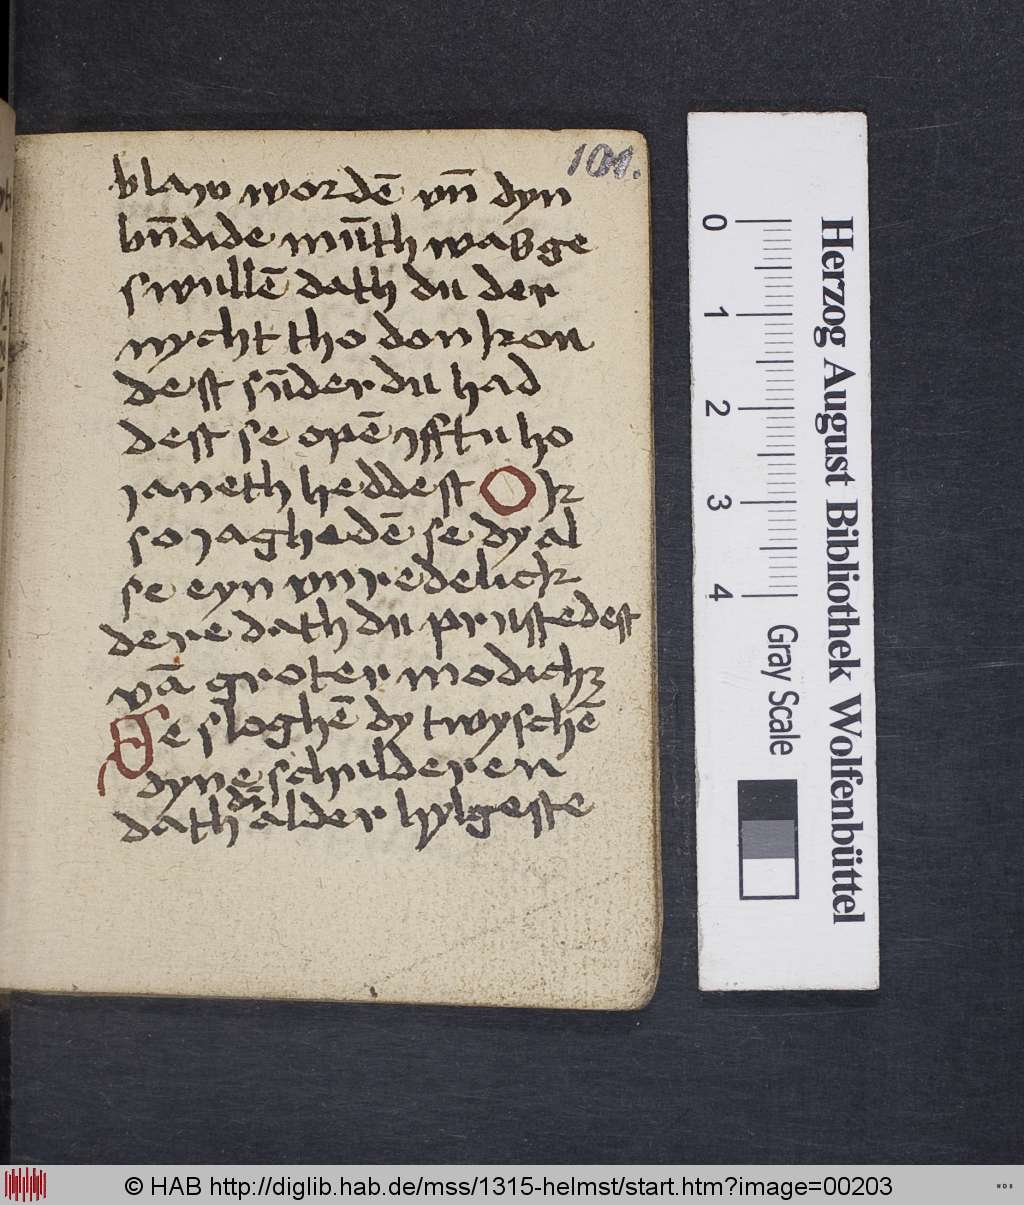 101.
blaw wordē vn̄ dyn
bn̄dide mūth was ge
swullē dath du der
nycht tho don kon
dest sn̄der du had
dest se opē ifftu ho
ianeth heddest Ok
so iaghedē se dy al
se eyn vnredelick
dere dath du prustedest
vā groter modich?
Se sloghē dy twyschē
dyne schulderen
dath dȳ alder hylgeste
0 1 2 3 4
Herzog August Bibliothek Wolfenbüttel
Gray Scale
© HAB http://diglib.hab.de/mss/1315-helmst/start.htm?image=00203